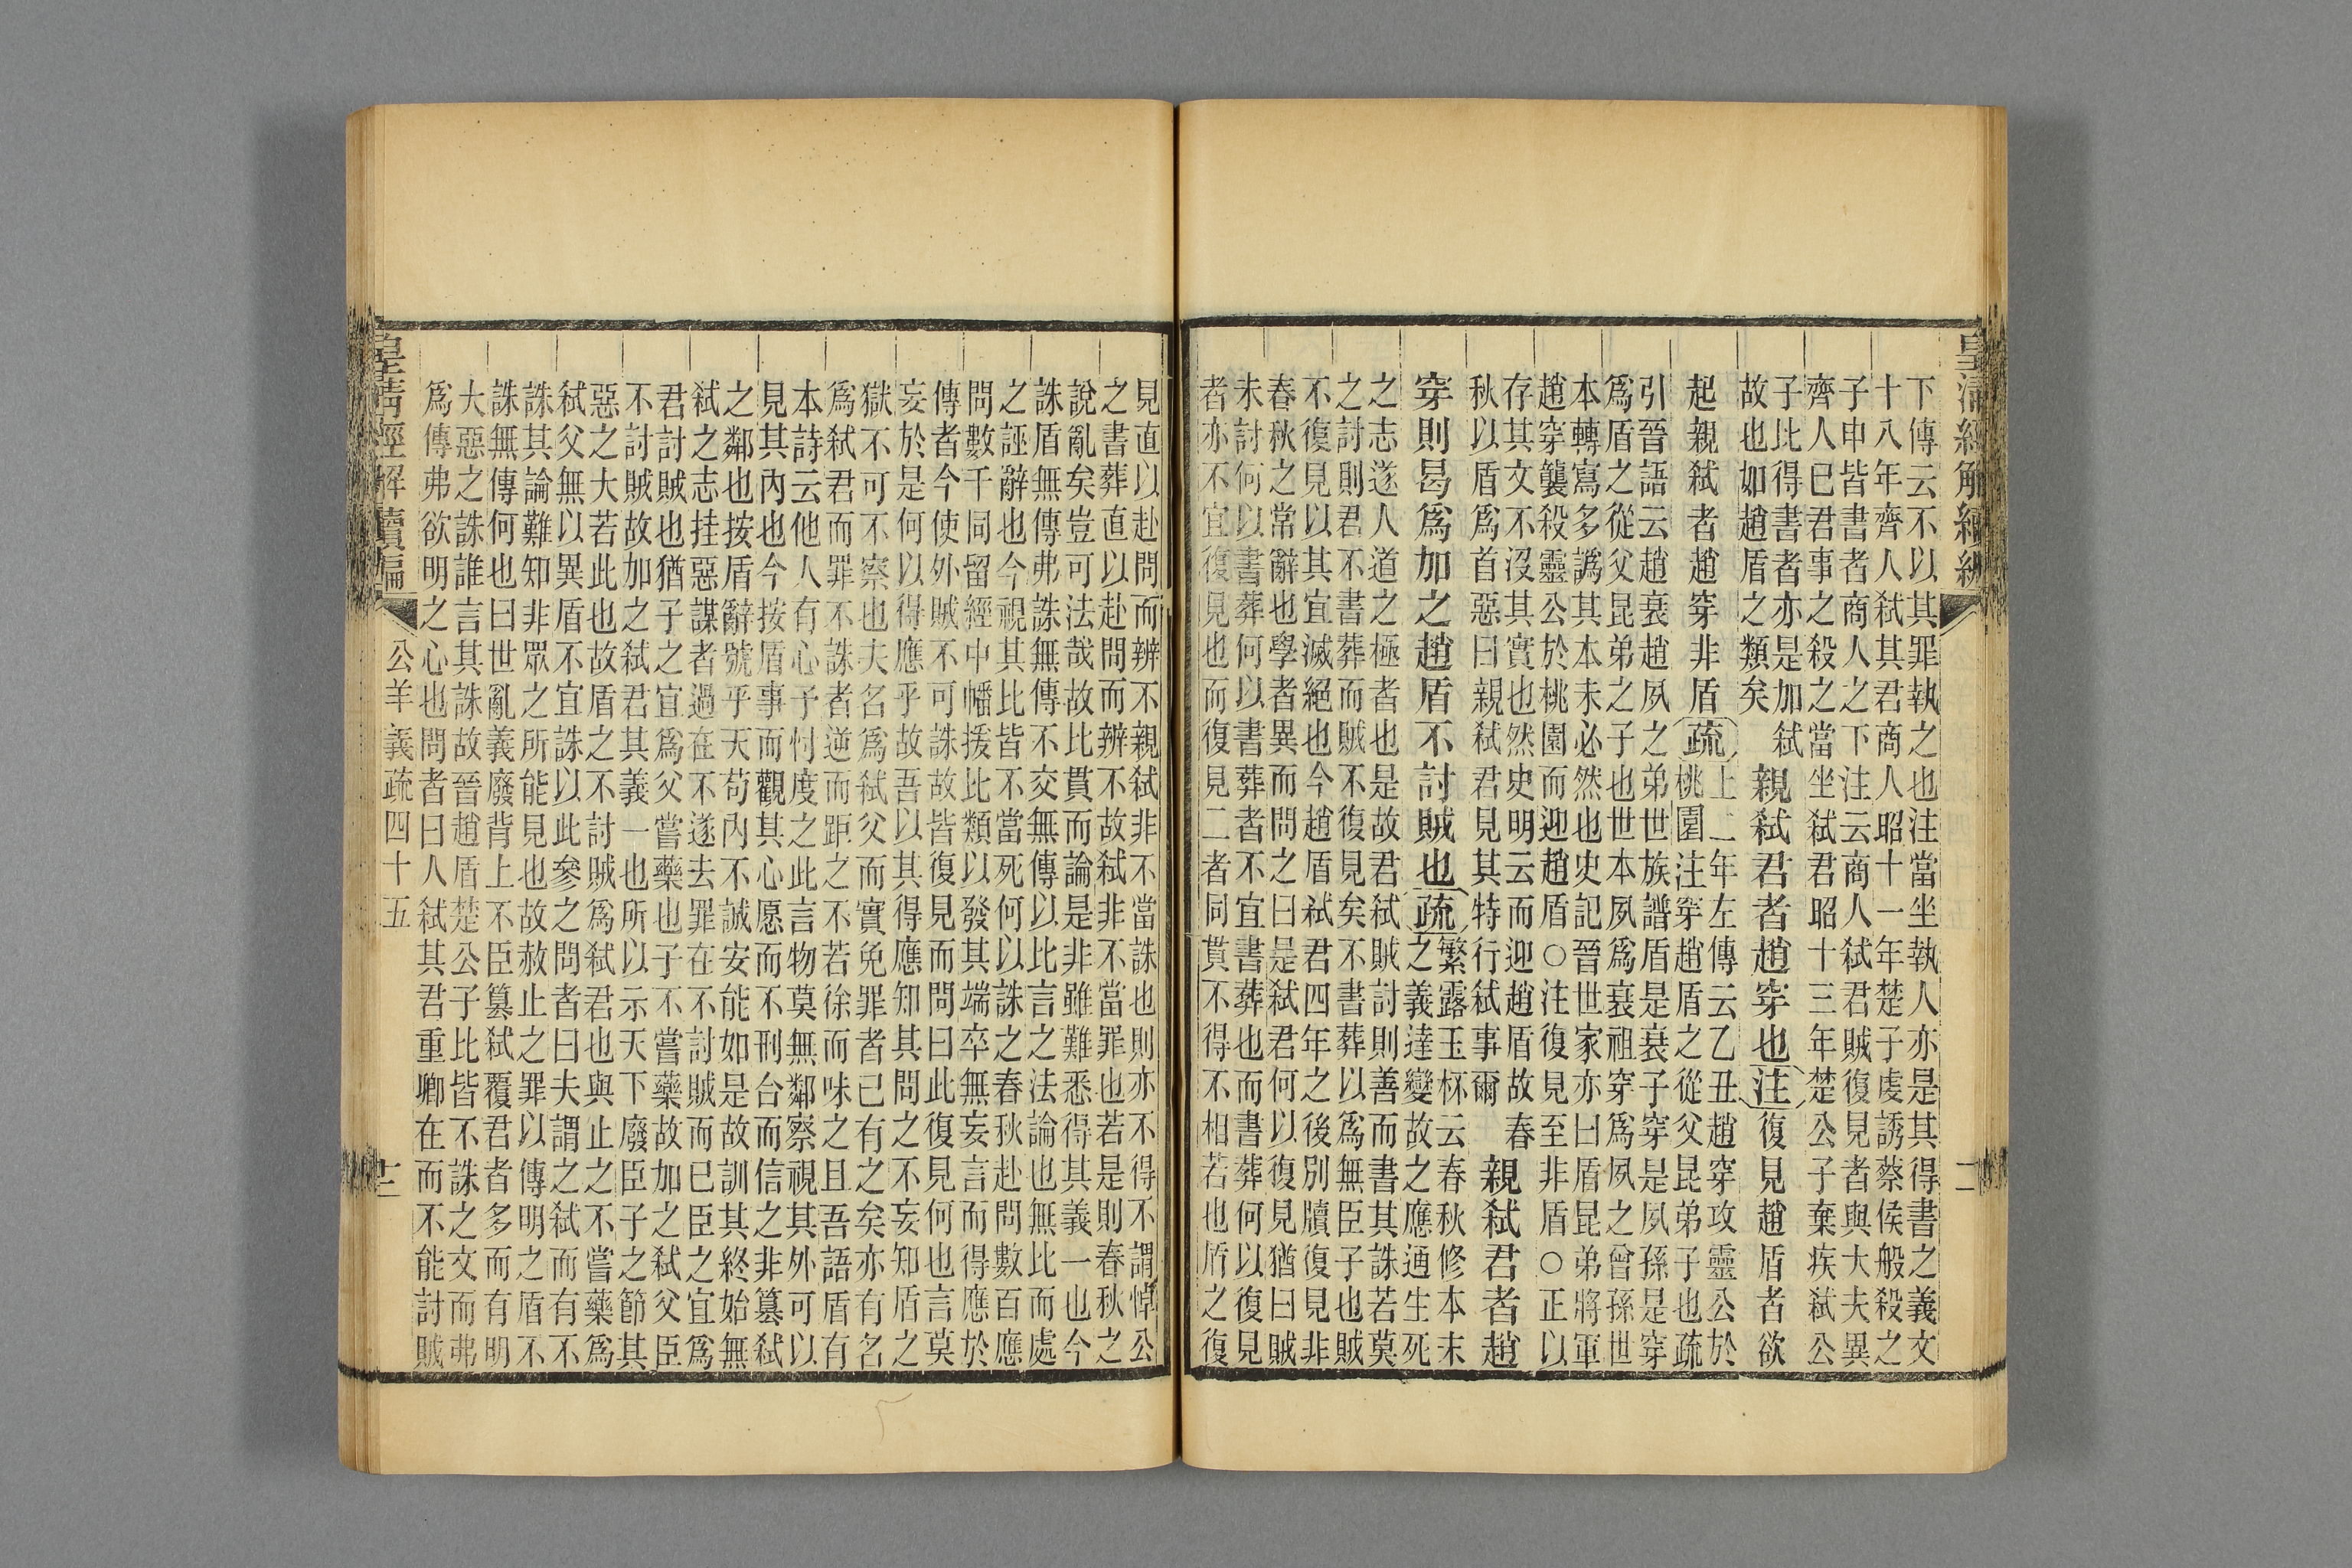 皇清經解續編
下傳云不以其罪執之也注當坐執人亦是其得書之義文
十八年齊人弒其君商人昭十一年楚子虔誘蔡侯般殺之
子申皆書者商人之下注云商人弒君賊復見者與大夫異
齊人已君事之殺之當坐弒君昭十三年楚公子棄疾弒公
子比得書者亦是加弒
故也如趙盾之類矣
親弒君者趙穿也注復見趙盾者欲
起親弒者趙穿非盾疏
上二年左傳云乙丑趙穿攻靈公於
桃園注穿趙盾之從父昆弟子也疏
引晉語云趙衰趙夙之弟世族譜盾是衰子穿是夙孫是穿
爲盾之從父昆弟之子也世本夙爲衰祖穿爲夙之曾孫世
本轉寫多譌其本未必然也史記晉世家亦曰盾昆弟將軍
趙穿襲殺靈公於桃園而迎趙盾○注復見至非盾○正以
存其文不沒其實也然史明云而迎趙盾故春
秋以盾爲首惡曰親弒君見其特行弒事爾
親弒君者趙
穿則曷爲加之趙盾不討賊也疏
繁露玉杯云春秋修本末
之義達變故之應通生死
之志遂人道之極者也是故君弒賊討則善而書其誅若莫
之討則君不書葬而賊不復見矣不書葬以爲無臣子也賊
不復見以其宜滅絕也今趙盾弒君四年之後別牘復見非
春秋之常辭也學者異而問之曰是弒君何以復見猶曰賊
未討何以書葬何以書葬者不宜書葬也而書葬何以復見
者亦不宜復見也而復見二者同貫不得不相若也盾之復
見直以赴問而辨不親弒非不當誅也則亦不得不謂悼公
之書葬直以赴問而辨不故弒非不當罪也若是則春秋之
說亂矣豈可法哉故比貫而論是非雖難悉得其義一也今
誅盾無傳弗誅無傳不交無傳以比言之法論也無比而處
之誣辭也今視其比皆不當死何以誅之春秋赴問數百應
問數千同留經中幡援比類以發其端卒無妄言而得應於
傳者今使外賊不可誅故皆復見而問曰此復見何也言莫
妄於是何以得應乎故吾以其得應知其問之不妄知盾之
獄不可不察也夫名爲弒父而實免罪者已有之矣亦有名
爲弒君而罪不誅者逆而距之不若徐而味之且吾語盾有
本詩云他人有心予忖度之此言物莫無鄰察視其外可以
見其內也今按盾事而觀其心愿而不刑台而信之非篡弒
之鄰也按盾辭號乎天苟內不誠安能如是故訓其終始無
弒之志挂惡謀者過在不遂去罪在不討賊而已臣之宜爲
君討賊也猶子之宜爲父嘗藥也子不嘗藥故加之弒父臣
不討賊故加之弒君其義一也所以示天下廢臣子之節其
惡之大若此也故盾之不討賊爲弒君也與止之不嘗藥爲
弒父無以異盾不宜誅以此參之問者曰夫謂之弒而有不
誅其論難知非眾之所能見也故赦止之罪以傳明之盾不
誅無傳何也曰世亂義廢背上不臣篡弒覆君者多而有明
大惡之誅誰言其誅故晉趙盾楚公子比皆不誅之文而弗
爲傳弗欲明之心也問者曰人弒其君重卿在而不能討賊
皇清經解續編 公羊義疏四十五